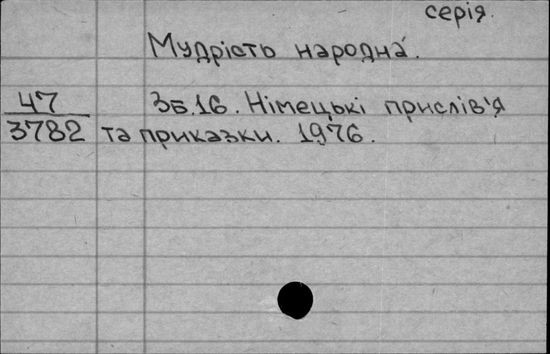 серія.
Мудрість народна.
47
3782
Зб.16. Німецькі прислів'я
та приказки. 1976.